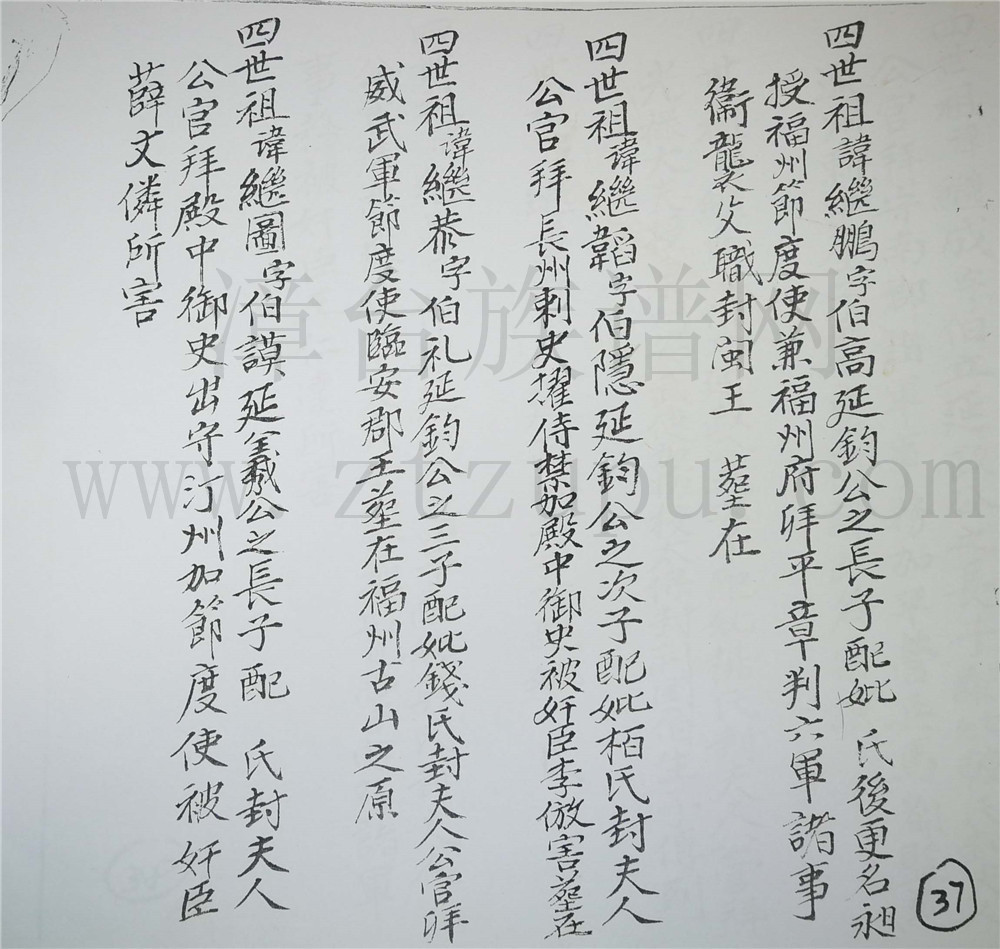 四世祖諱繼鵬字伯高延鈞公之長子配妣 氏後更名昶
授福州節度使兼福州府拜平章判六軍諸事
衞襲父職封閩王 塟在
四世祖諱繼韜字伯隱延鈞公之次子配妣栢氏封夫人
公官拜長州刺史擢侍禁加殿中御史被奸臣李倣害塟在
四世祖諱繼恭字伯礼延鈞公之三子配妣錢氏封夫人公官拜
威武軍節度使臨安郡王塟在福州古山之原
四世祖諱繼圖字伯謨延羲公之長子配 氏封夫人
公官拜殿中御史出守汀州加節度使被奸臣
薛文僯所害
37
漳台族谱网
www.ztzupu.com